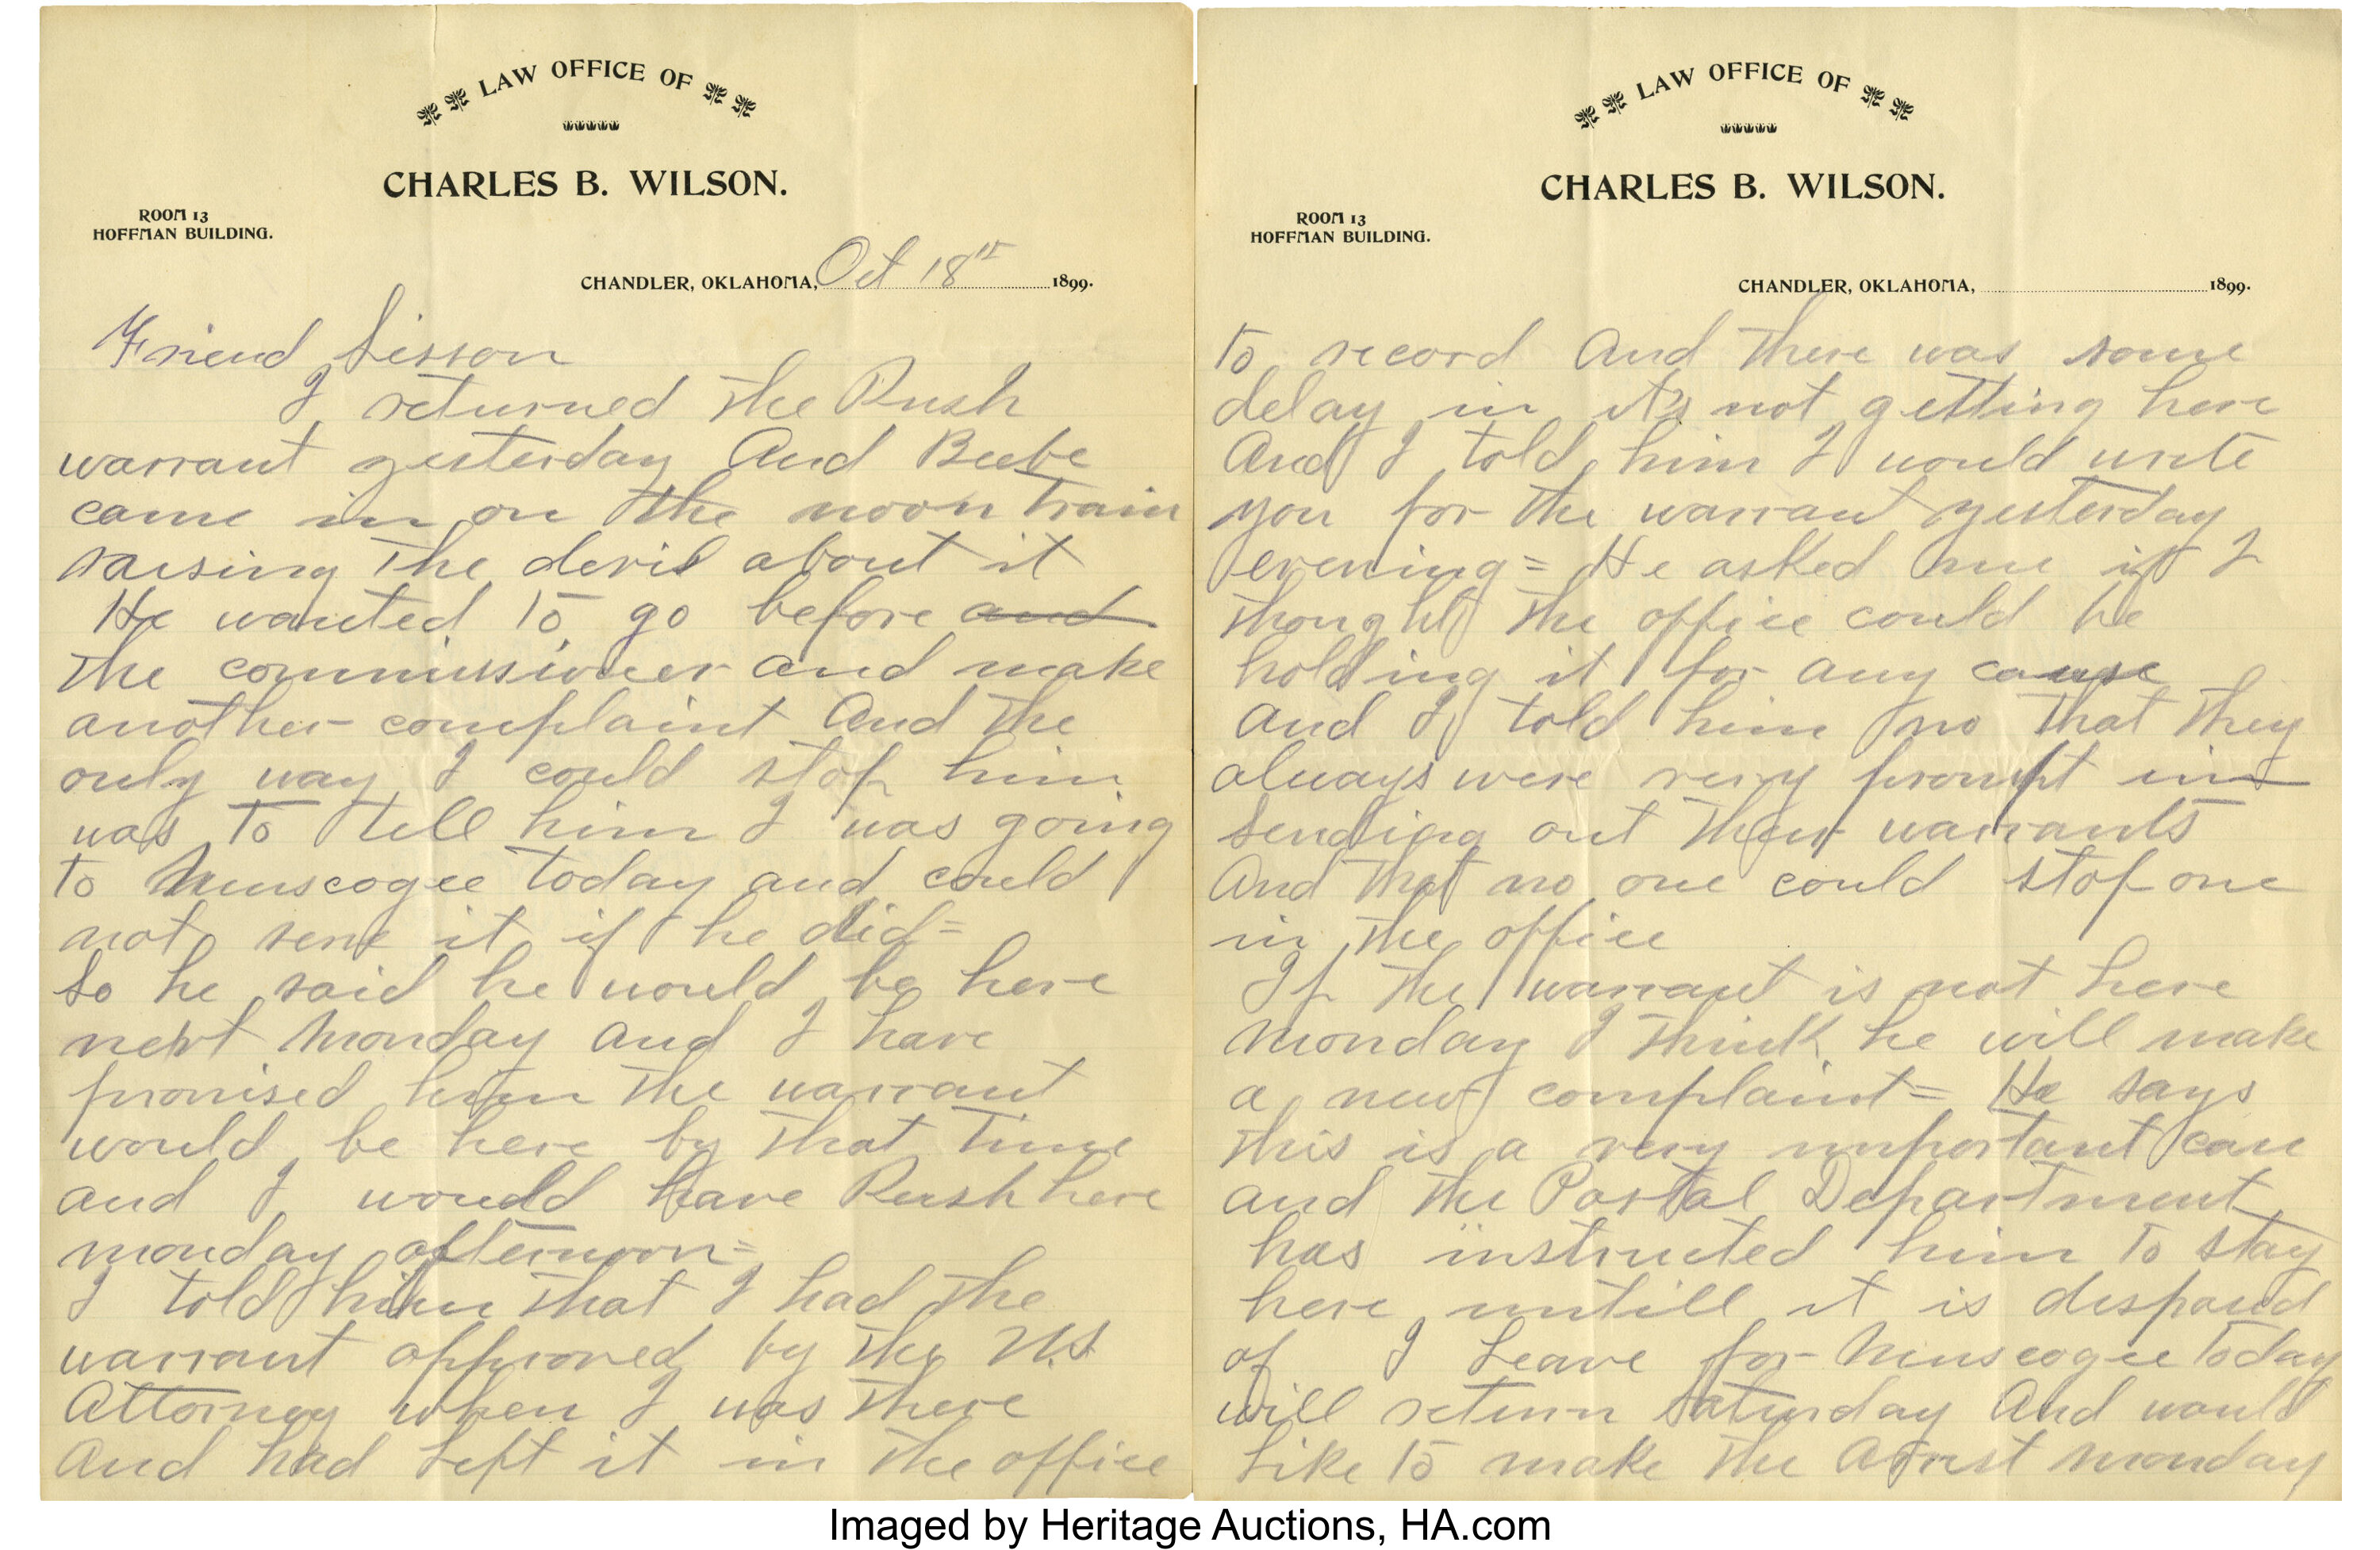 LAW OFFICE OF
CHARLES B. WILSON.
ROOM 13
HOFFMAN BUILDING.
CHANDLER, OKLAHOMA, Oct 18th 1899.
Friend Sisson
I returned the Rush
warrant yesterday And Beebe
came in on the noon train
raising the devil about it
He wanted to go before and
the commissioner and make
another complaint And the
only way I could stop him
was to tell him I was going
to Muscogee today and could
not serve it if he did =
So he said he would be here
next Monday and I have
promised him the warrant
would be here by that time
and I would have Rush here
monday afternoon =
I told him that I had the
warrant approved by the U.S
Attorney when I was there
And had left it in the office
LAW OFFICE OF
CHARLES B. WILSON.
ROOM 13
HOFFMAN BUILDING.
CHANDLER, OKLAHOMA, 1899.
to record And there was some
delay in it's not getting here
And I told him I would write
you for the warrant yesterday
evening = He asked me if I
thought the office could be
holding it for any cause
and I told him no that they
always were very prompt in
sending out their warrants
And that no one could stop one
in the office
If the warrant is not here
Monday I think he will make
a new complaint = He says
this is a very important case
and the Postal Department
has instructed him to stay
here untill it is disposed
of I Leave for Muscogee today
will return Saturday And would
Like to make the Arrest Monday
Imaged by Heritage Auctions, HA.com